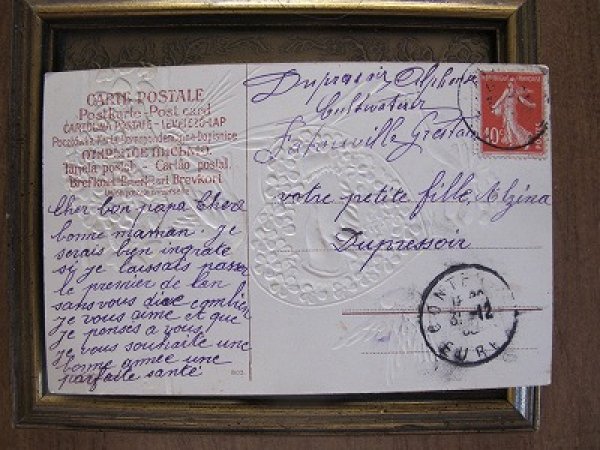 CARTE POSTALE
Postkarte - Post card
CARTOLINA POSTALE - LEVELEZŐ-LAP
Dopisnice
ОТКРЫТОЕ ПИСЬМО
Tarjeta postal - Cartão postal
Brefkort Brevkort
Cher bon papa Chère
bonne maman. je
serais bien ingrate
si je laissais passer
le premier de l'an
sans vous dire combien
je vous aime et que
je penses a vous
je vous souhaite une
bonne année une
parfaite santé
Dupressoir Alphonse
Cultivateur
Fatouville Grestain
votre petite fille, Alzina
Dupressoir
RÉPUBLIQUE FRANÇAISE
10c
31-12
EURE